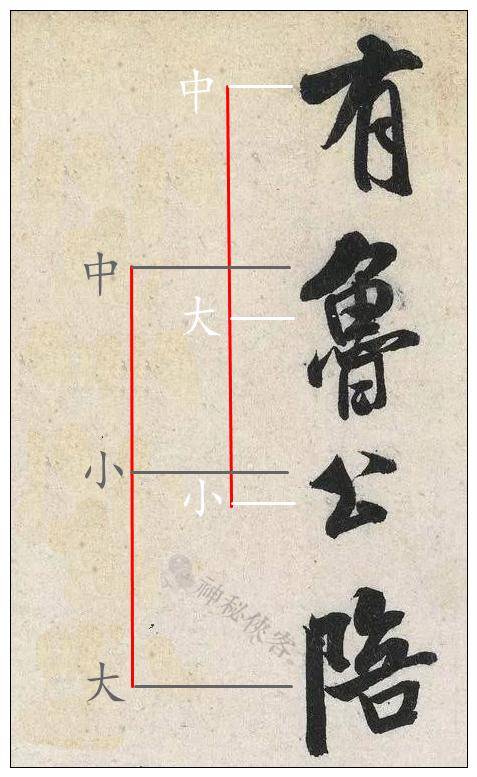 有魯公陪
中
大
小
中
小
大
神秘侠客